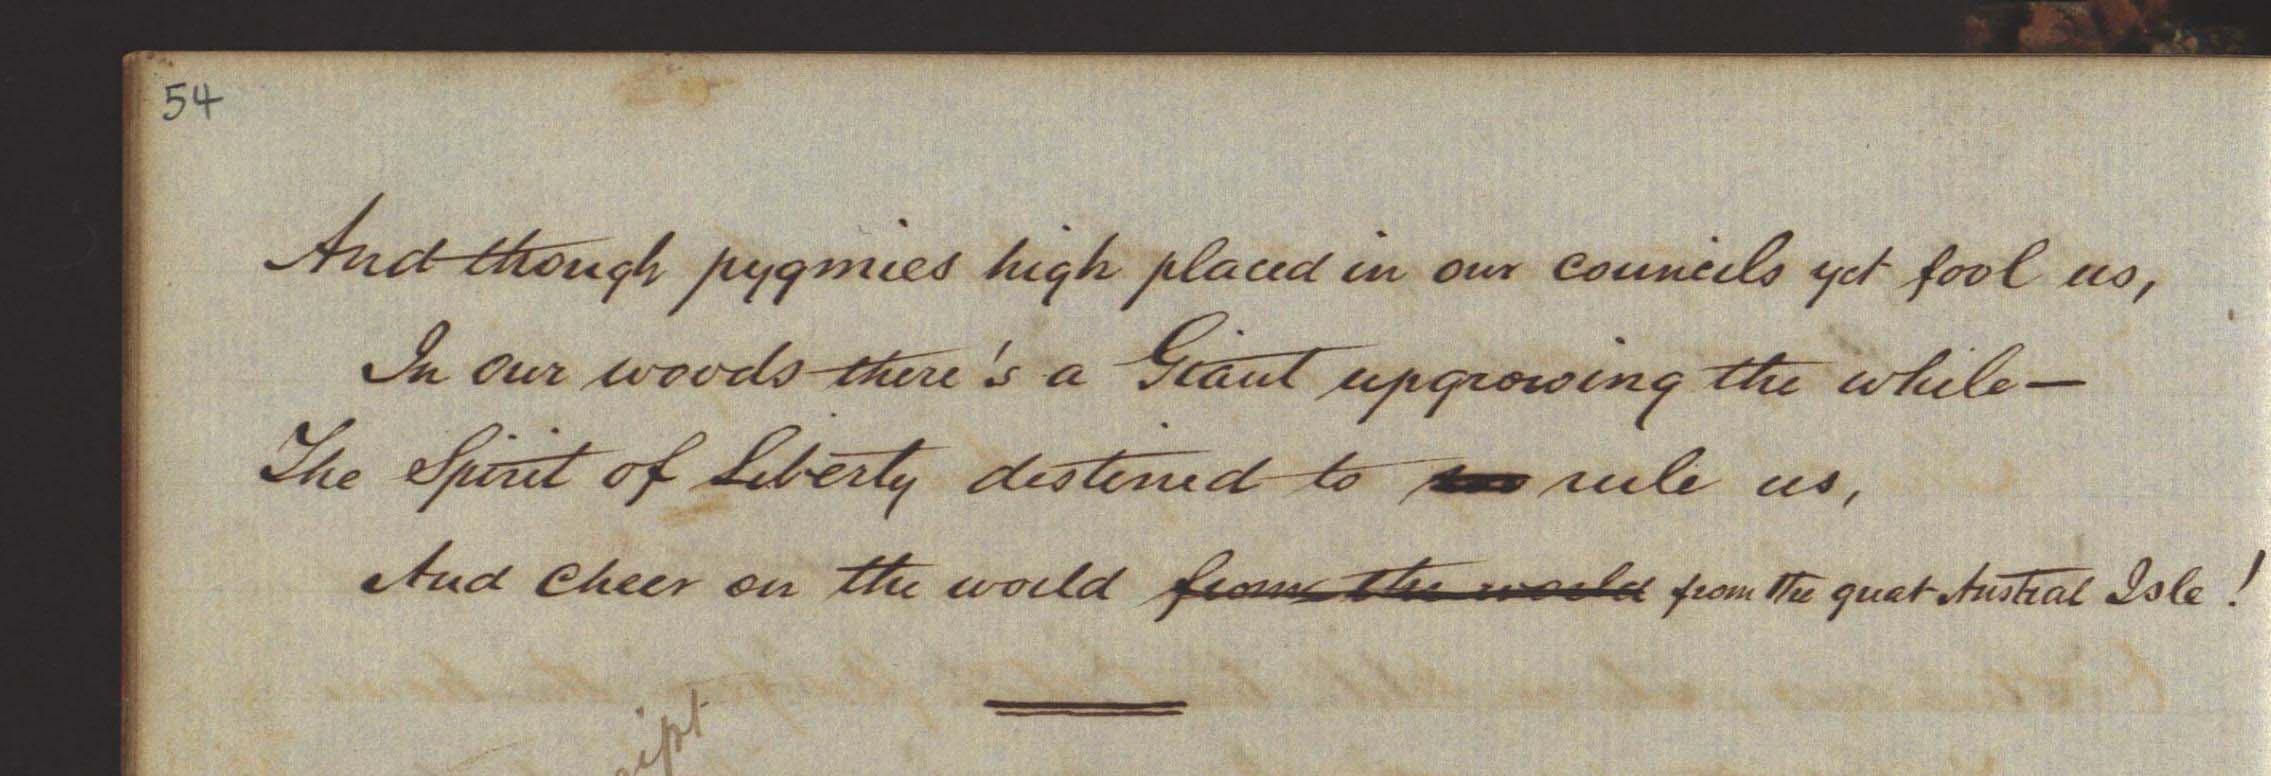 54
And though pygmies high placed in our councils yet fool us,
In our woods there's a Giant upgrowing the while—
The Spirit of Liberty destined to rule us,
And cheer on the world from the world from the great Austral Isle!